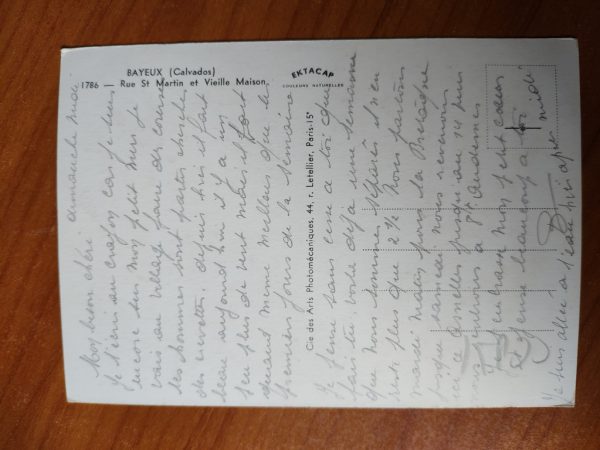 BAYEUX (Calvados)
1786 — Rue St Martin et Vieille Maison
EKTACAP
COULEURS NATURELLES
Cie des Arts Photomécaniques, 44, r. Letellier, Paris-15e
dimanche midi
Mon bien chéri
je t'écris au crayon car je suis
encore sur mon petit murs je
vais au village faire des courses
les hommes sont partis chercher
des crevettes. depuis hier il fait
beau aujourd'hui il y a un
peu plus de vent mais il fait
quand même meilleur que les
premiers jours de la semaine
Je pense sans cesse à toi que
fais-tu. voilà déjà une semaine
que nous sommes séparés il n'en
reste plus que 2 ½ Nous partons
mardi matin pour la Bretagne
jusque samedi nous revenons
jusque au 14 puis
nous à Pt Audemer
je t'embrasse mon petit coeur
et pense beaucoup à toi
Je suis allée à l'eau hier après midi